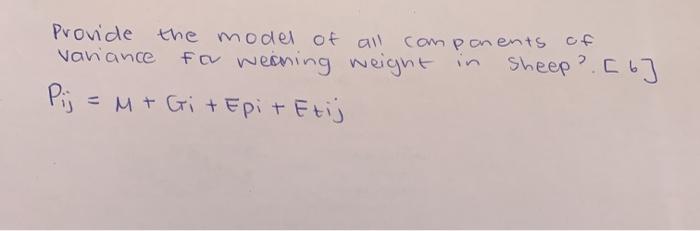 Provide the model of all components of
Variance for weaning weight in Sheep?. [6]
Pij = M + Gi + Epi + Etij